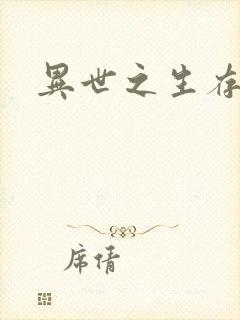 異世之生存
席情